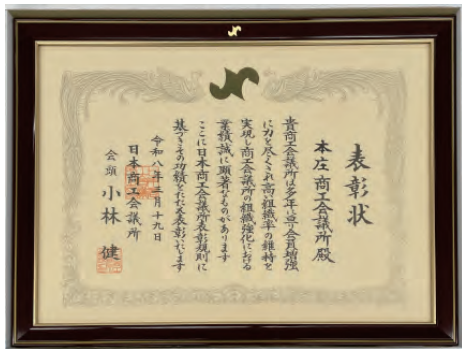 表彰状
本庄商工会議所殿
貴商工会議所は多年に亘り会員増強
に力を尽くされ高い組織率の維持を
実現し商工会議所の組織強化における
業績誠に顕著なものがあります
ここに日本商工会議所表彰規則に
基づきその功績をたたえ表彰いたします
令和八年三月十九日
日本商工会議所
会頭 小林健